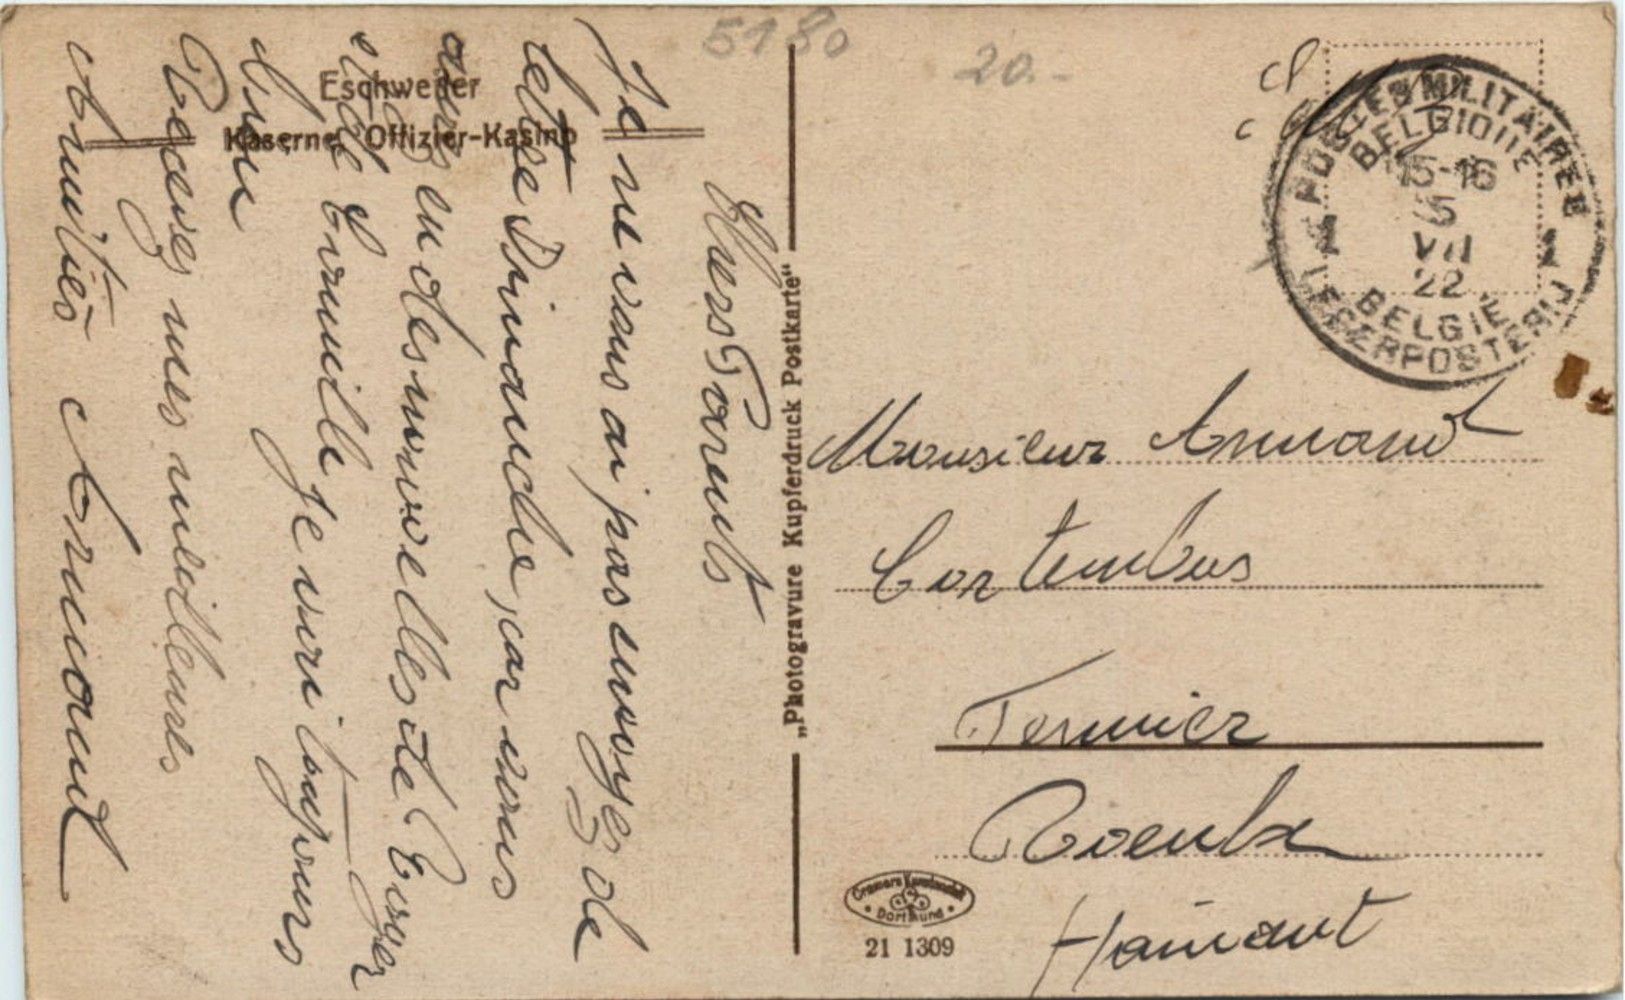 5180
20.-
Eschweiler
Kaserne, Offizier-Kasino
Chers Parents
Je ne vous ai pas envoyez de
lettre Dimanche, car vous
aurez eu des nouvelles de
Je vais toujours
bien
Recevez mes meilleures
Amitiés Armand
„Photogravure Kupferdruck Postkarte“
POSTES MILITAIRES
BELGIQUE
15-16
5
VII
22
BELGIË
LEGERPOSTERIJ
Monsieur Armand
Cortembos
Fermier
Roeulx
Hainaut
Cramers Kunstanstalt
Dortmund
21 1309